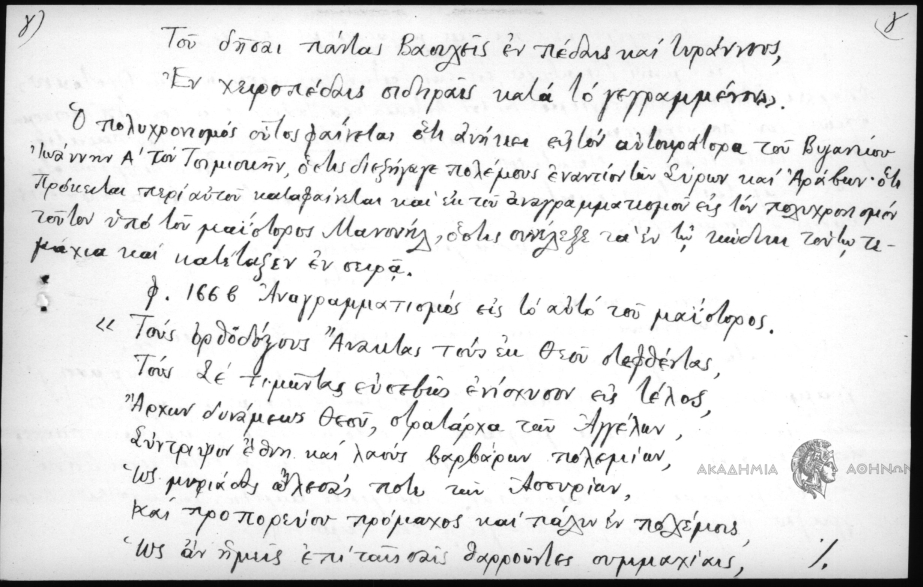 γ) γ
Τοῦ δῆσαι πάντας Βασιλεῖς ἐν πέδαις καί τυράννους,
Ἐν χειροπέδαις σιδηραῖς κατά τό γεγραμμένον.
Ὁ πολυχρονισμός οὗτος φαίνεται ὅτι ἀνήκει εἰς τόν αὐτοκράτορα τοῦ Βυζαντίου
Ἰωάννην Α' τόν Τσιμισκῆν, ὅστις διεξήγαγε πολέμους ἐναντίον τῶν Σύρων καί Ἀράβων· ὅτι
πρόκειται περί αὐτοῦ καταφαίνεται καί ἐκ τοῦ ἀναγραμματισμοῦ εἰς τόν πολυχρονισμόν
τοῦτον ὑπό τοῦ μαΐστορος Μανουήλ, ὅστις συνέλεξε τά ἐν τῷ κώδικι τούτῳ τε-
μάχια καί κατέταξεν ἐν σειρᾷ.
φ. 166β Ἀναγραμματισμός εἰς τό αὐτό τοῦ μαΐστορος.
« Τούς ὀρθοδόξους Ἄνακτας τούς ἐκ Θεοῦ στεφθέντας,
Τούς Σέ τιμῶντας εὐσεβῶς ἐνίσχυσον εἰς τέλος,
Ἄρχων δυνάμεως Θεοῦ, στρατάρχα τῶν Ἀγγέλων,
Σύντριψον ἔθνη καί λαούς βαρβάρων πολεμίων,
Ὡς μυριάδας ὤλεσάς ποτε τῶν Ἀσσυρίων,
Καί προπορεύου πρόμαχος καί πάλιν ἐν πολέμοις,
Ὡς ἄν ἡμεῖς ἐπί ταῖς σαῖς θαρροῦντες συμμαχίαις, ./.
ΑΚΑΔΗΜΙΑ ΑΘΗΝΩΝ